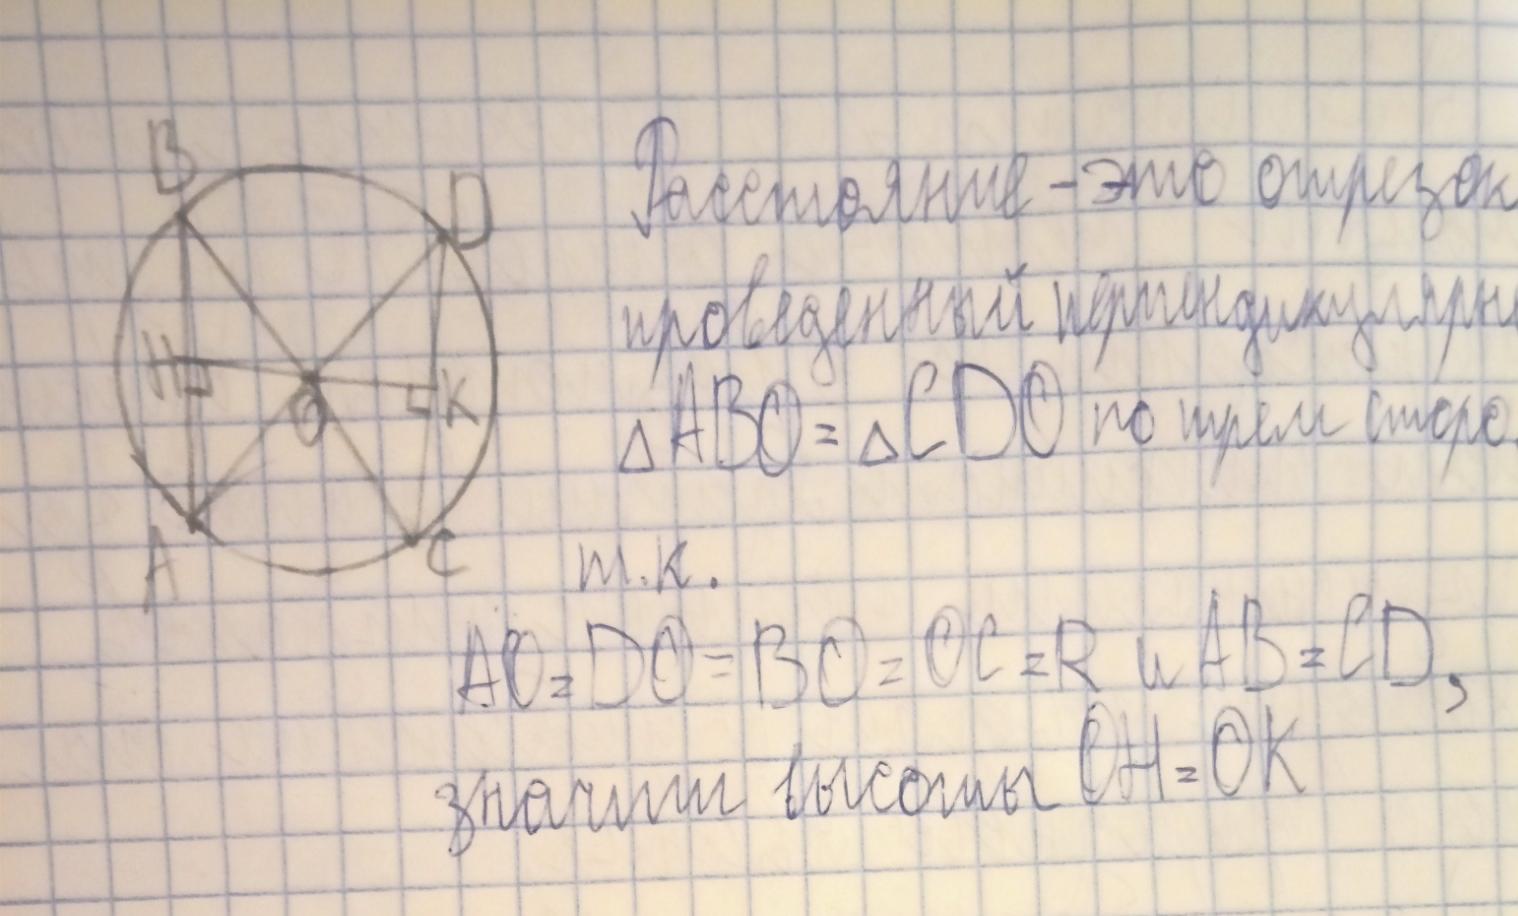 B
D
H
O
K
A
C
Расстояние - это отрезок
проведенный перпендикулярн
△ABO = △CDO по трем сторо
т.к.
AO = DO = BO = OC = R и AB = CD,
значит высоты OH = OK